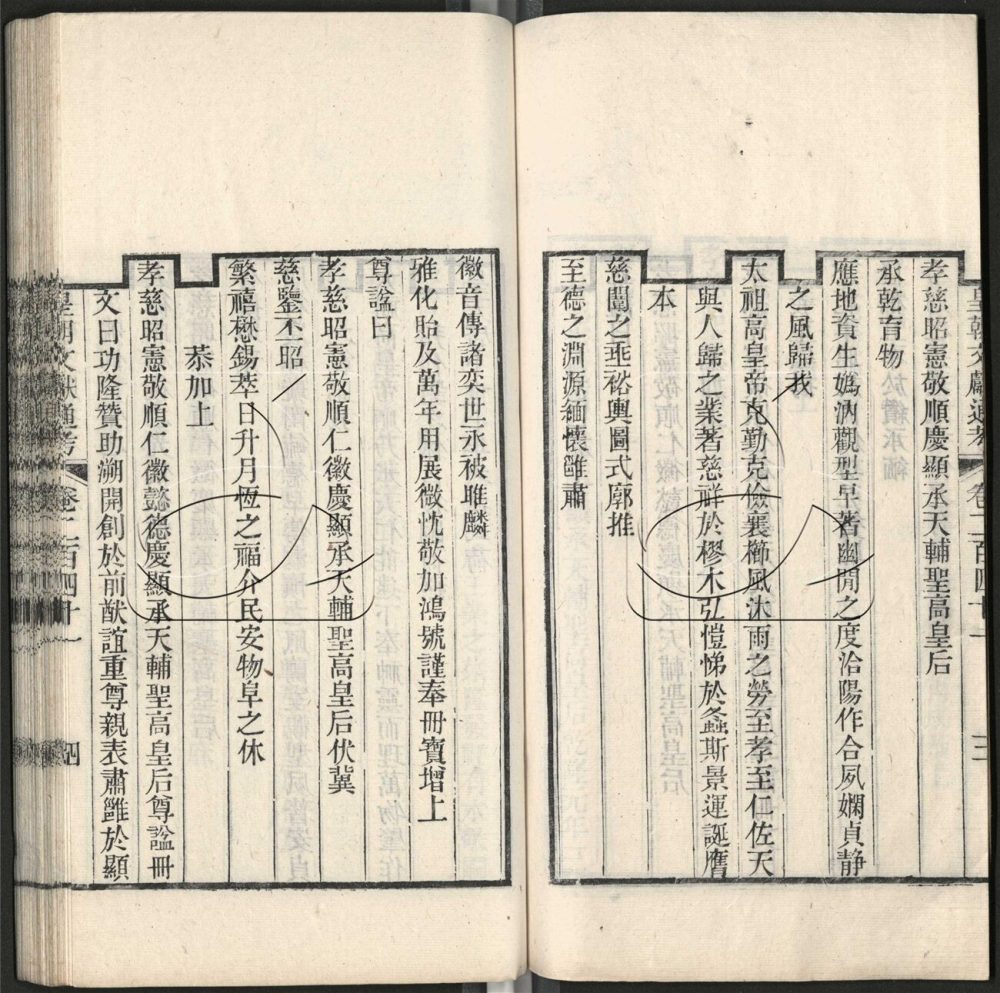 皇朝文獻通考 卷二百四十一 三
孝慈昭憲敬順慶顯承天輔聖高皇后
承乾育物
應地資生媯汭觀型早著幽閒之度洽陽作合夙嫻貞靜
之風歸我
太祖高皇帝克勤克儉襄櫛風沐雨之勞至孝至仁佐天
與人歸之業著慈祥於樛木弘愷悌於螽斯景運誕膺
本
慈闈之垂裕輿圖式廓推
至德之淵源緬懷雝肅
徽音傳諸奕世永被雎麟
雅化貽及萬年用展微忱敬加鴻號謹奉冊寶增上
尊諡曰
孝慈昭憲敬順仁徽慶顯承天輔聖高皇后伏冀
慈鑒丕昭
繁禧懋錫萃日升月恆之福介民安物阜之休
恭加上
孝慈昭憲敬順仁徽懿德慶顯承天輔聖高皇后尊諡冊
文曰功隆贊助溯開創於前猷誼重尊親表肅雝於顯
皇朝文獻通考 卷二百四十一 四